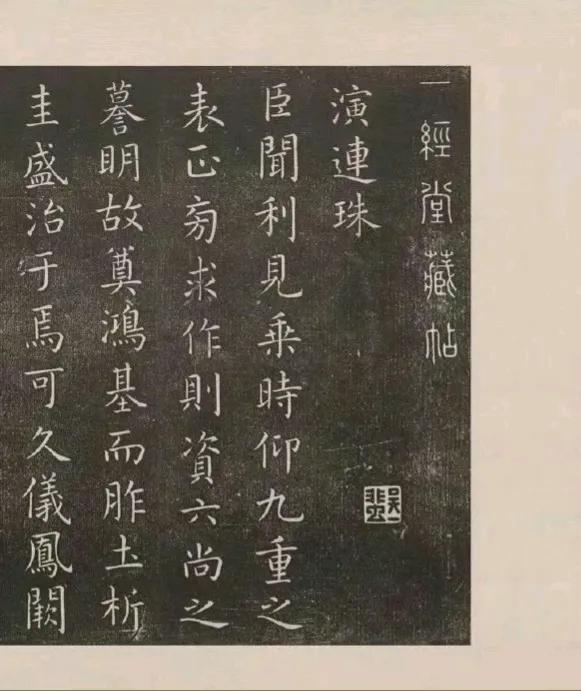 一經堂藏帖
演連珠
臣聞利見乘時仰九重之
表正旁求作則資六尚之
謩明故奠鴻基而胙土析
圭盛治于焉可久儀鳳闕